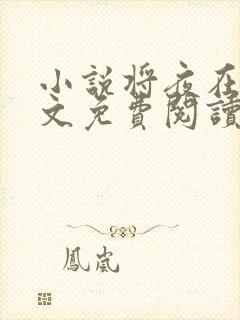 小説將夜在
文免費閱讀
鳳嵐